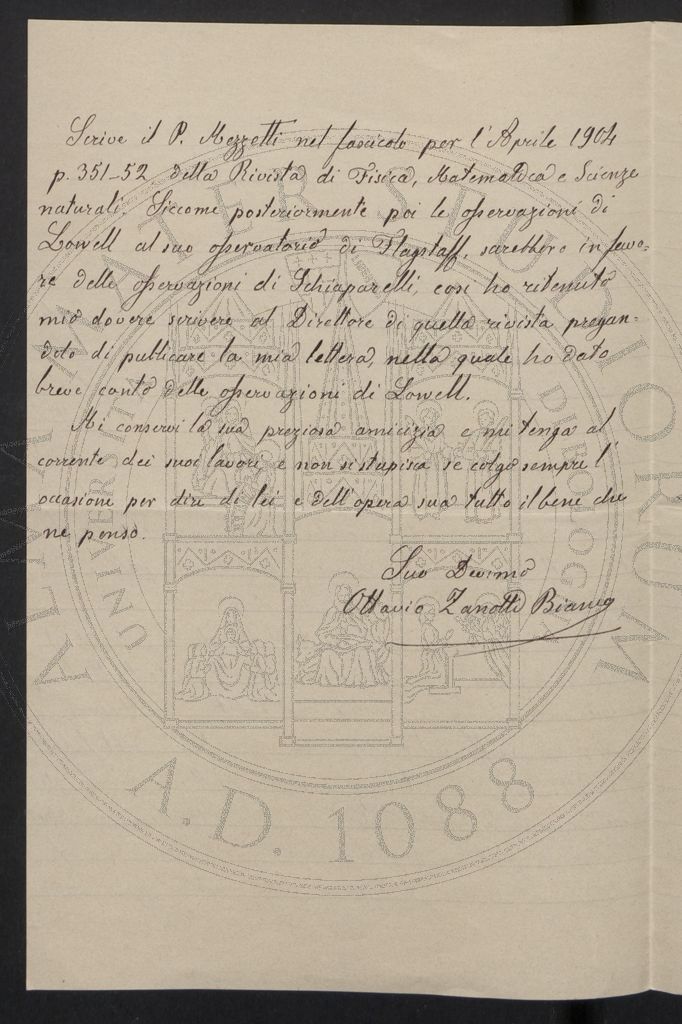 Scrive il P. Mezzetti nel fascicolo per l'Aprile 1904
p. 351-52 della Rivista di Fisica, Matematica e Scienze
naturali. Siccome posteriormente poi le osservazioni di
Lowell al suo osservatorio di Flagstaff, sarebbero in favo-
re delle osservazioni di Schiaparelli, così ho ritenuto
mio dovere scrivere al Direttore di quella rivista pregan-
dolo di publicare la mia lettera, nella quale ho dato
breve conto delle osservazioni di Lowell.
Mi conservi la sua preziosa amicizia e mi tenga al
corrente dei suoi lavori, e non si stupisca se colgo sempre l'
occasione per dire di lei e dell'opera sua tutto il bene che
ne penso.
Suo Devmo
Ottavio Zanotti Bianco
ALMA MATER STUDIORUM
A.D. 1088